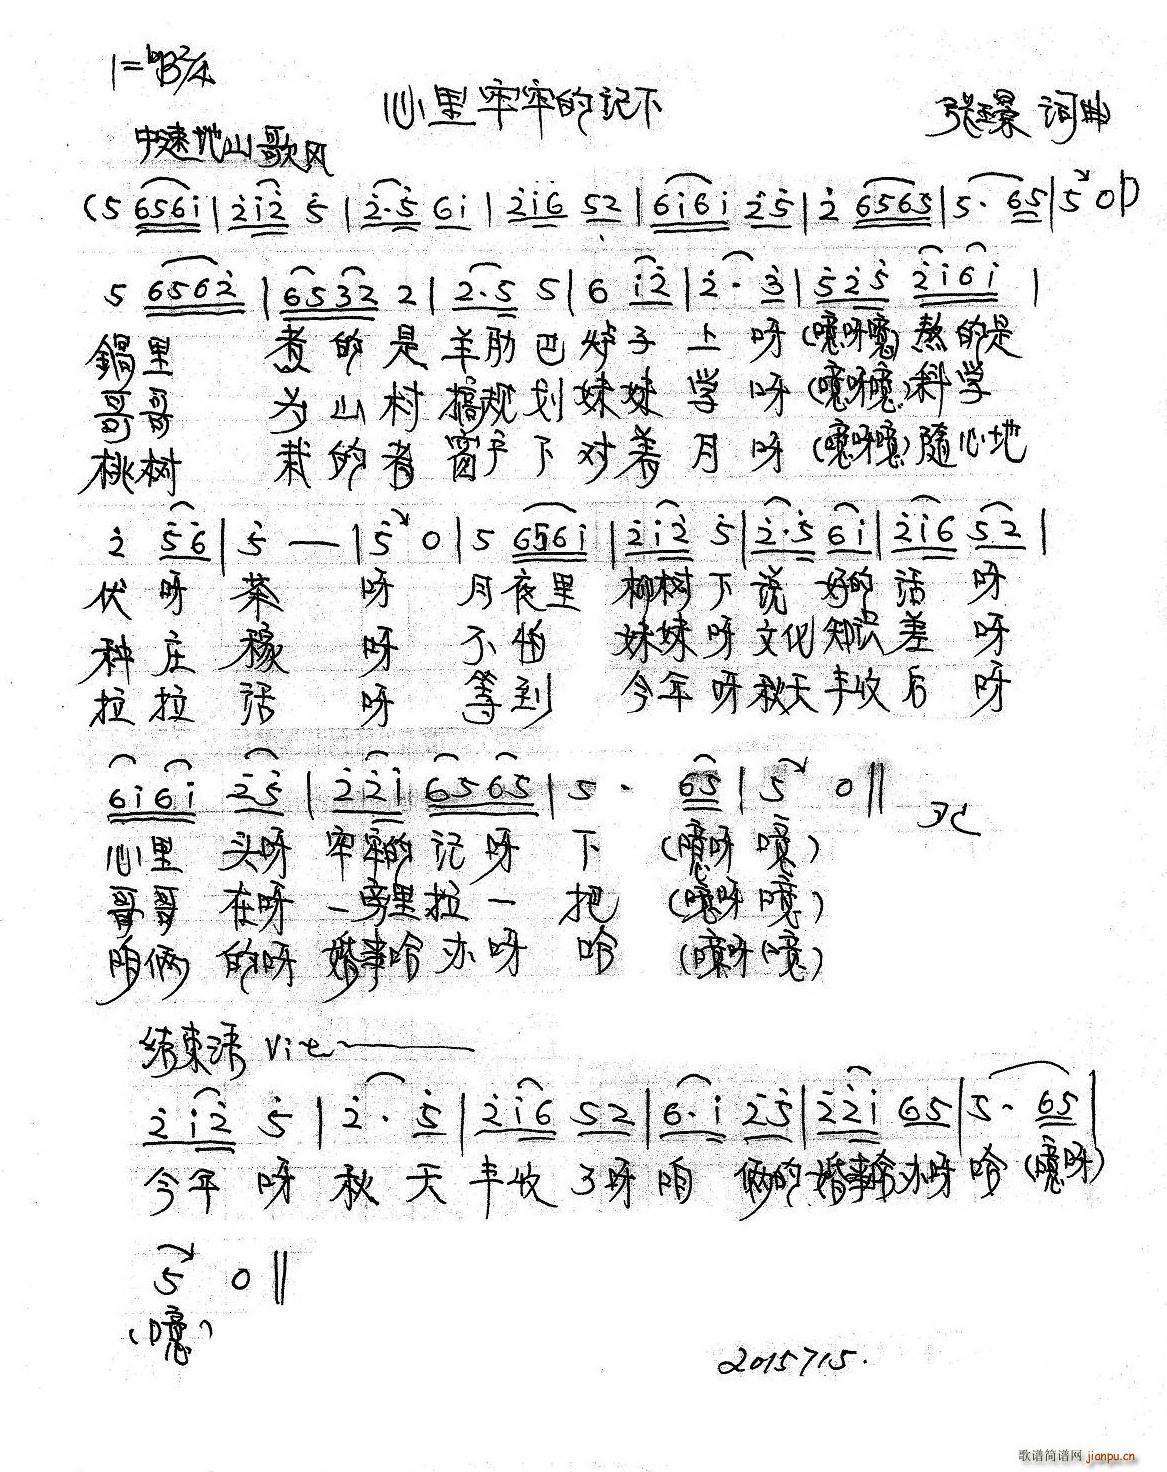 1=♭B 2/4
心里牢牢的记下
张 词曲
中速地山歌风
(5 6561|2i2 5|2·5 6i|2i6 52|6i6i 25|2 6565|5· 65|5 0|)
5 6562|6532 2|2·5 5|6 i2|2· 3|525 2i6i|
鍋里 煮的是羊肋巴炉子上呀(噫呀噫)熬的是
哥哥 为山村搞规划妹妹学呀(噫呀噫)科学
桃树 栽的者窗户下对着月呀(噫呀噫)随心地
2 56|5 —|5 0|5 656i|2i2 5|2·5 6i|2i6 52|
伏呀茶呀月夜里柳树下说好的话呀
种庄稼呀不怕妹妹呀文化知识差呀
拉拉话呀等到今年呀秋天丰收后呀
6i6i 25|22i 6565|5· 65|5 0‖
心里头呀牢牢的记呀下(噫呀噫)
哥哥在呀一旁里拉一把(噫呀噫)
咱俩的呀婚事哈办呀哈(噫呀噫)
结束语
2i2 5|2· 5|2i6 52|6·i 25|22i 65|5· 65|
今年呀秋天丰收了呀咱俩的婚事哈办呀哈(噫呀)
5 0‖
(噫)
2015715.
歌谱简谱网 jianpu.cn